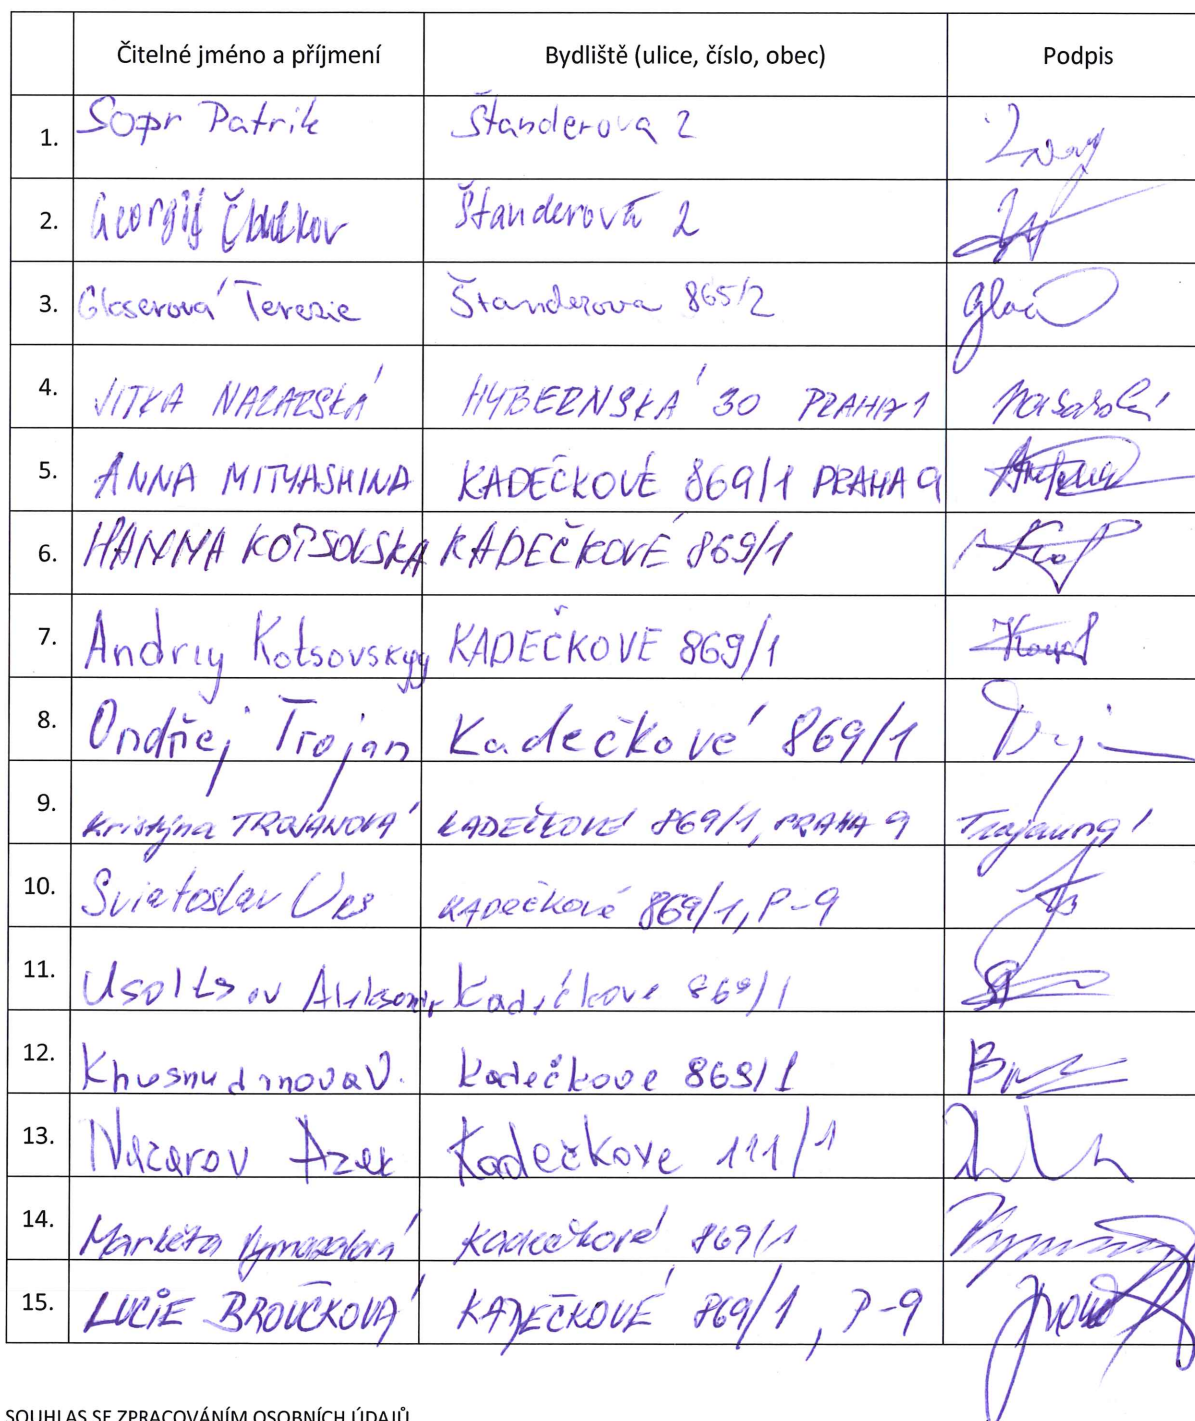 Čitelné jméno a příjmení Bydliště (ulice, číslo, obec) Podpis
1. Sopr Patrik Štanderova 2
2. Georgij Štanderová 2
3. Glaserová Terezie Štanderova 865/2
4. JITKA NAZARSKÁ HYBERNSKÁ 30 PRAHA 1
5. ANNA MITYASHINA KADEČKOVÉ 869/1 PRAHA 9
6. HANNA KOTSOVSKA KADEČKOVÉ 869/1
7. Andriy Kotsovskyy KADEČKOVE 869/1
8. Ondřej Trojan Kadečkové 869/1
9. Kristýna TROJANOVÁ KADEČKOVÉ 869/1, PRAHA 9 Trojanová
10. Sviatoslav Ves KADEČKOVÉ 869/1, P-9
11. Kadečkove 869/1
12. Khusnudinova V. Kadečkove 869/1
13. Nazarov Azek Kadečkove 111/1
14. Markéta Vymazalová Kadečkové 869/1
15. LUCIE BROUČKOVÁ KADEČKOVÉ 869/1, P-9
SOUHLAS SE ZPRACOVÁNÍM OSOBNÍCH ÚDAJŮ